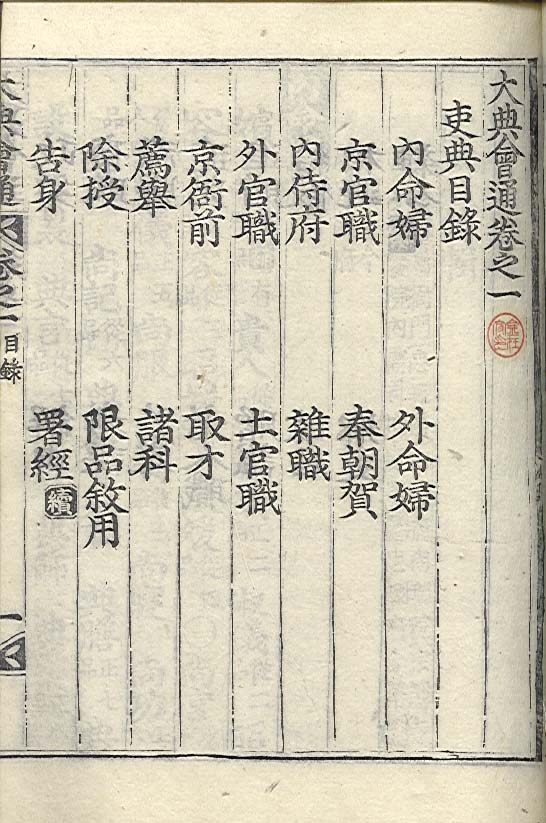 大典會通卷之一
吏典目錄
內命婦 外命婦
京官職 奉朝賀
內侍府 雜職
外官職 土官職
京衙前 取才
薦舉 諸科
除授 限品敘用
告身 署經 續
大典會通 卷之一 目錄 一